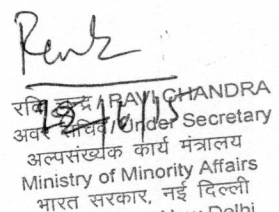 रवि चन्द्र/RAVI CHANDRA
18/6/15
अवर सचिव/Under Secretary
अल्पसंख्यक कार्य मंत्रालय
Ministry of Minority Affairs
भारत सरकार, नई दिल्ली
New Delhi